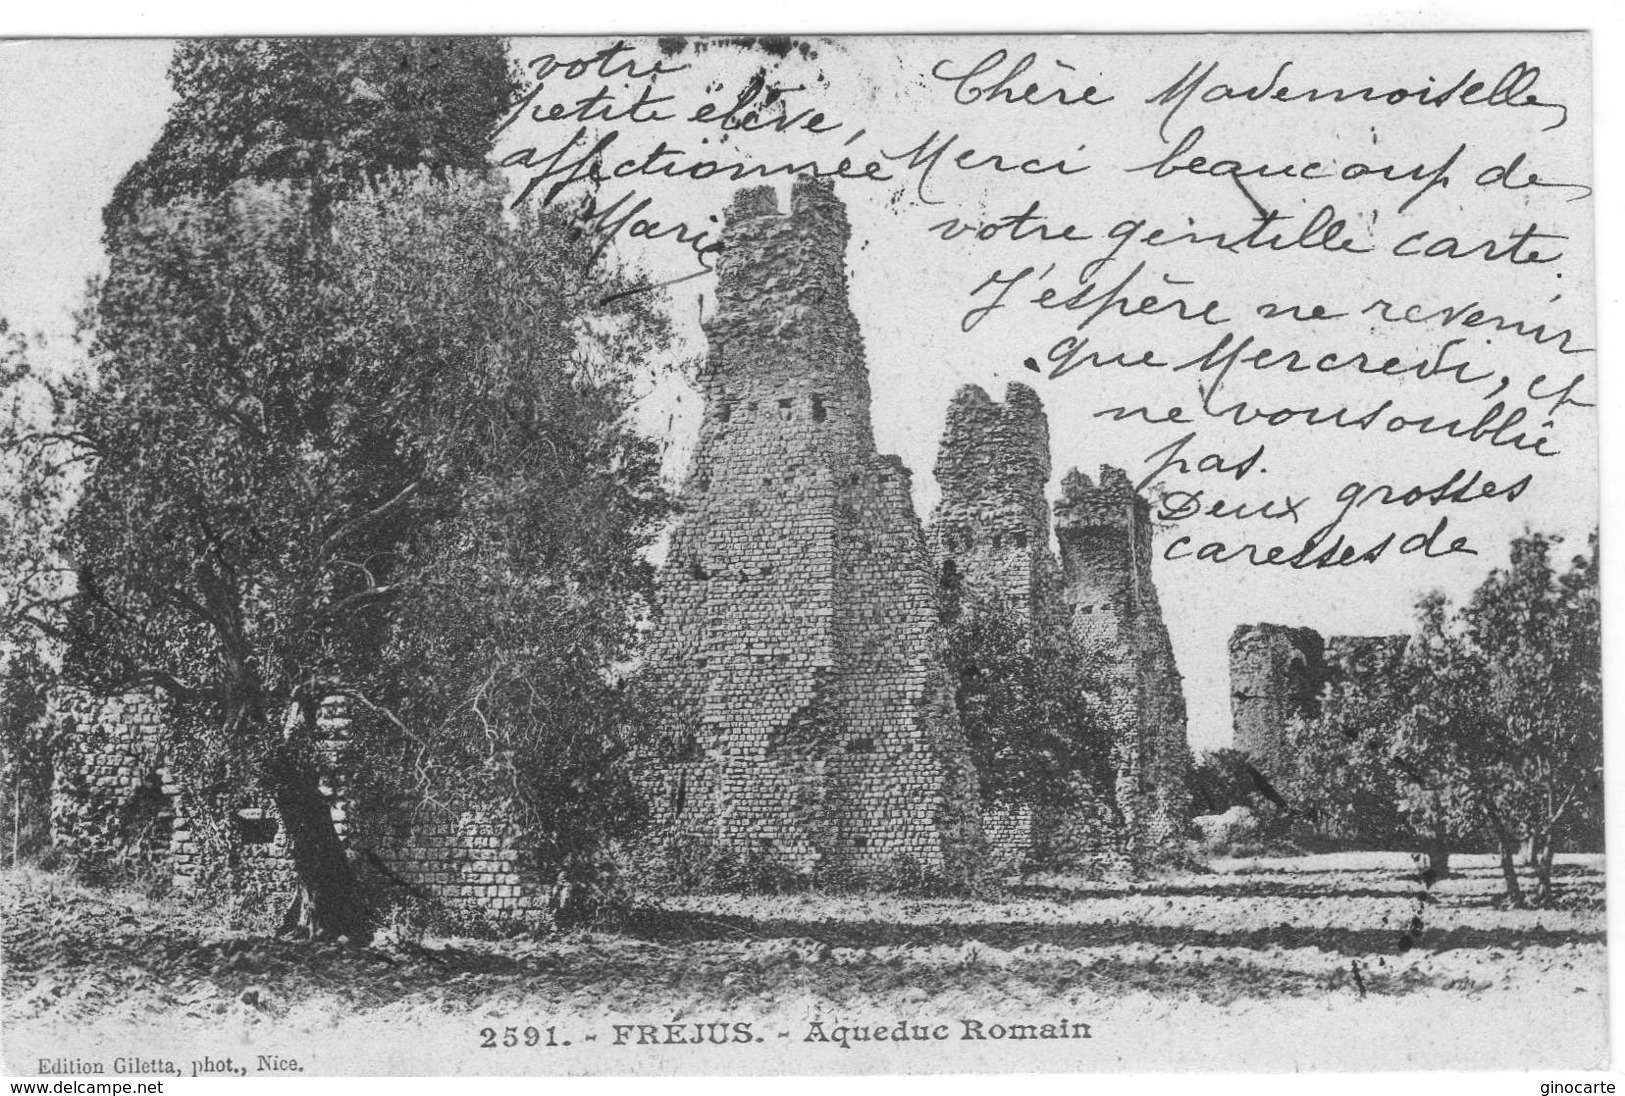 Chère Mademoiselle,
Merci beaucoup de
votre gentille carte.
J'espère ne revenir
que Mercredi, et
ne vous oublie
pas.
Deux grosses
caresses de
votre
petite élève,
affectionnée
Marie
2591. - FRÉJUS. - Aqueduc Romain
Edition Giletta, phot., Nice.
www.delcampe.net
ginocarte